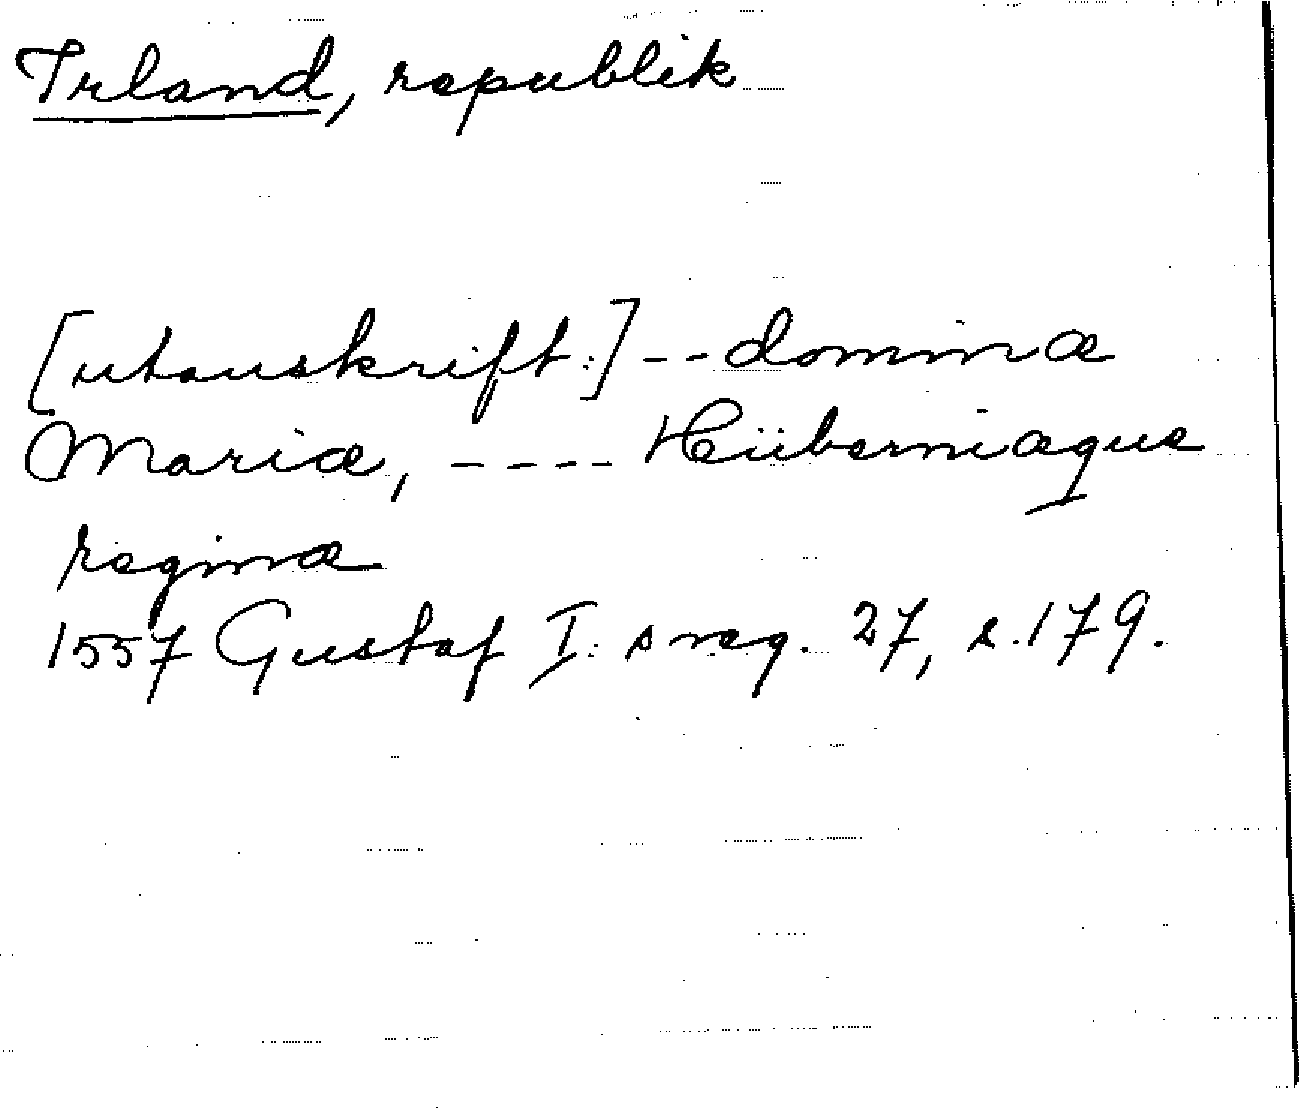 Irland, republik
[utanskrift:] -- dominæ
Mariæ, ---- Hüberniæque
reginæ
1557 Gustaf I:s reg. 27, s. 179.